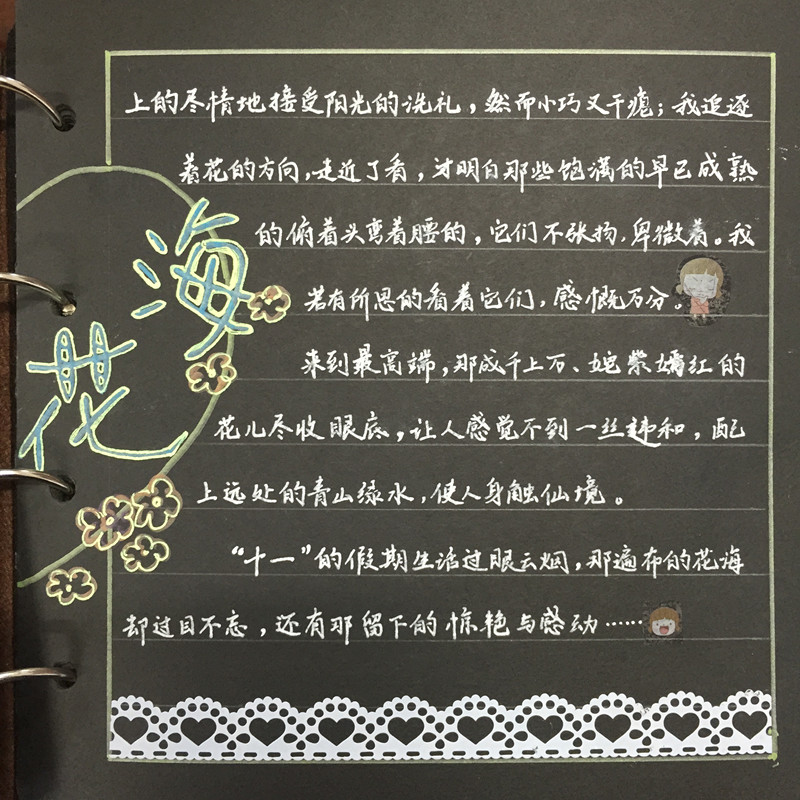 花海
上的尽情地接受阳光的洗礼，然而小巧又干瘪；我追逐
着花的方向，走近了看，才明白那些饱满的早已成熟
的俯着头弯着腰的，它们不张扬，卑微着。我
若有所思的看着它们，感慨万分。
来到最高端，那成千上万、姹紫嫣红的
花儿尽收眼底，让人感觉不到一丝违和，配
上远处的青山绿水，使人身触仙境。
“十一”的假期生活过眼云烟，那遍布的花海
却过目不忘，还有那留下的惊艳与感动……